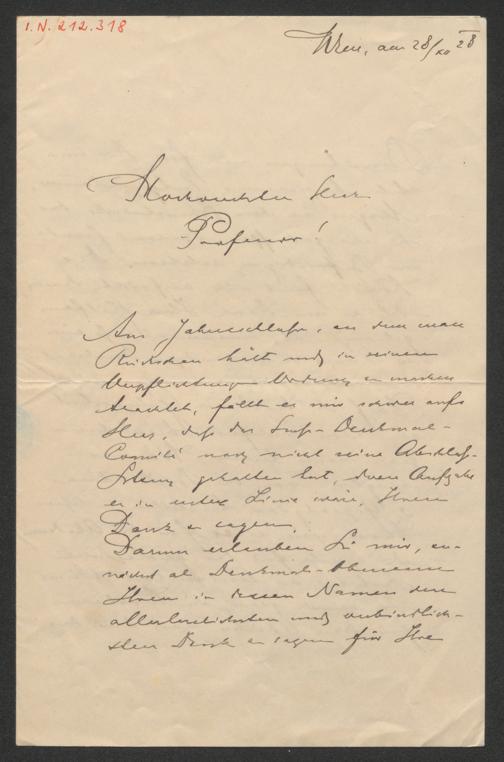 I.N. 212.318
Wien, am 28/XII 28
Hochverehrter Herr
Professor!
Am Jahresschlusse, an dem man
Rückschau hält und in seinen
Verpflichtungen Ordnung zu machen
trachtet, fällt es mir schwer aufs
Herz, daß das Denkmal-
Comité noch nicht seine Abschluß-
Sitzung gehalten hat, deren Aufgabe
es in erster Linie wäre, Ihnen
Dank zu sagen.
Darum erlauben Sie mir, zu-
nächst als Denkmal-Obmann
Ihnen in dessen Namen den
allerherzlichsten und verbindlich-
sten Dank zu sagen für Ihre